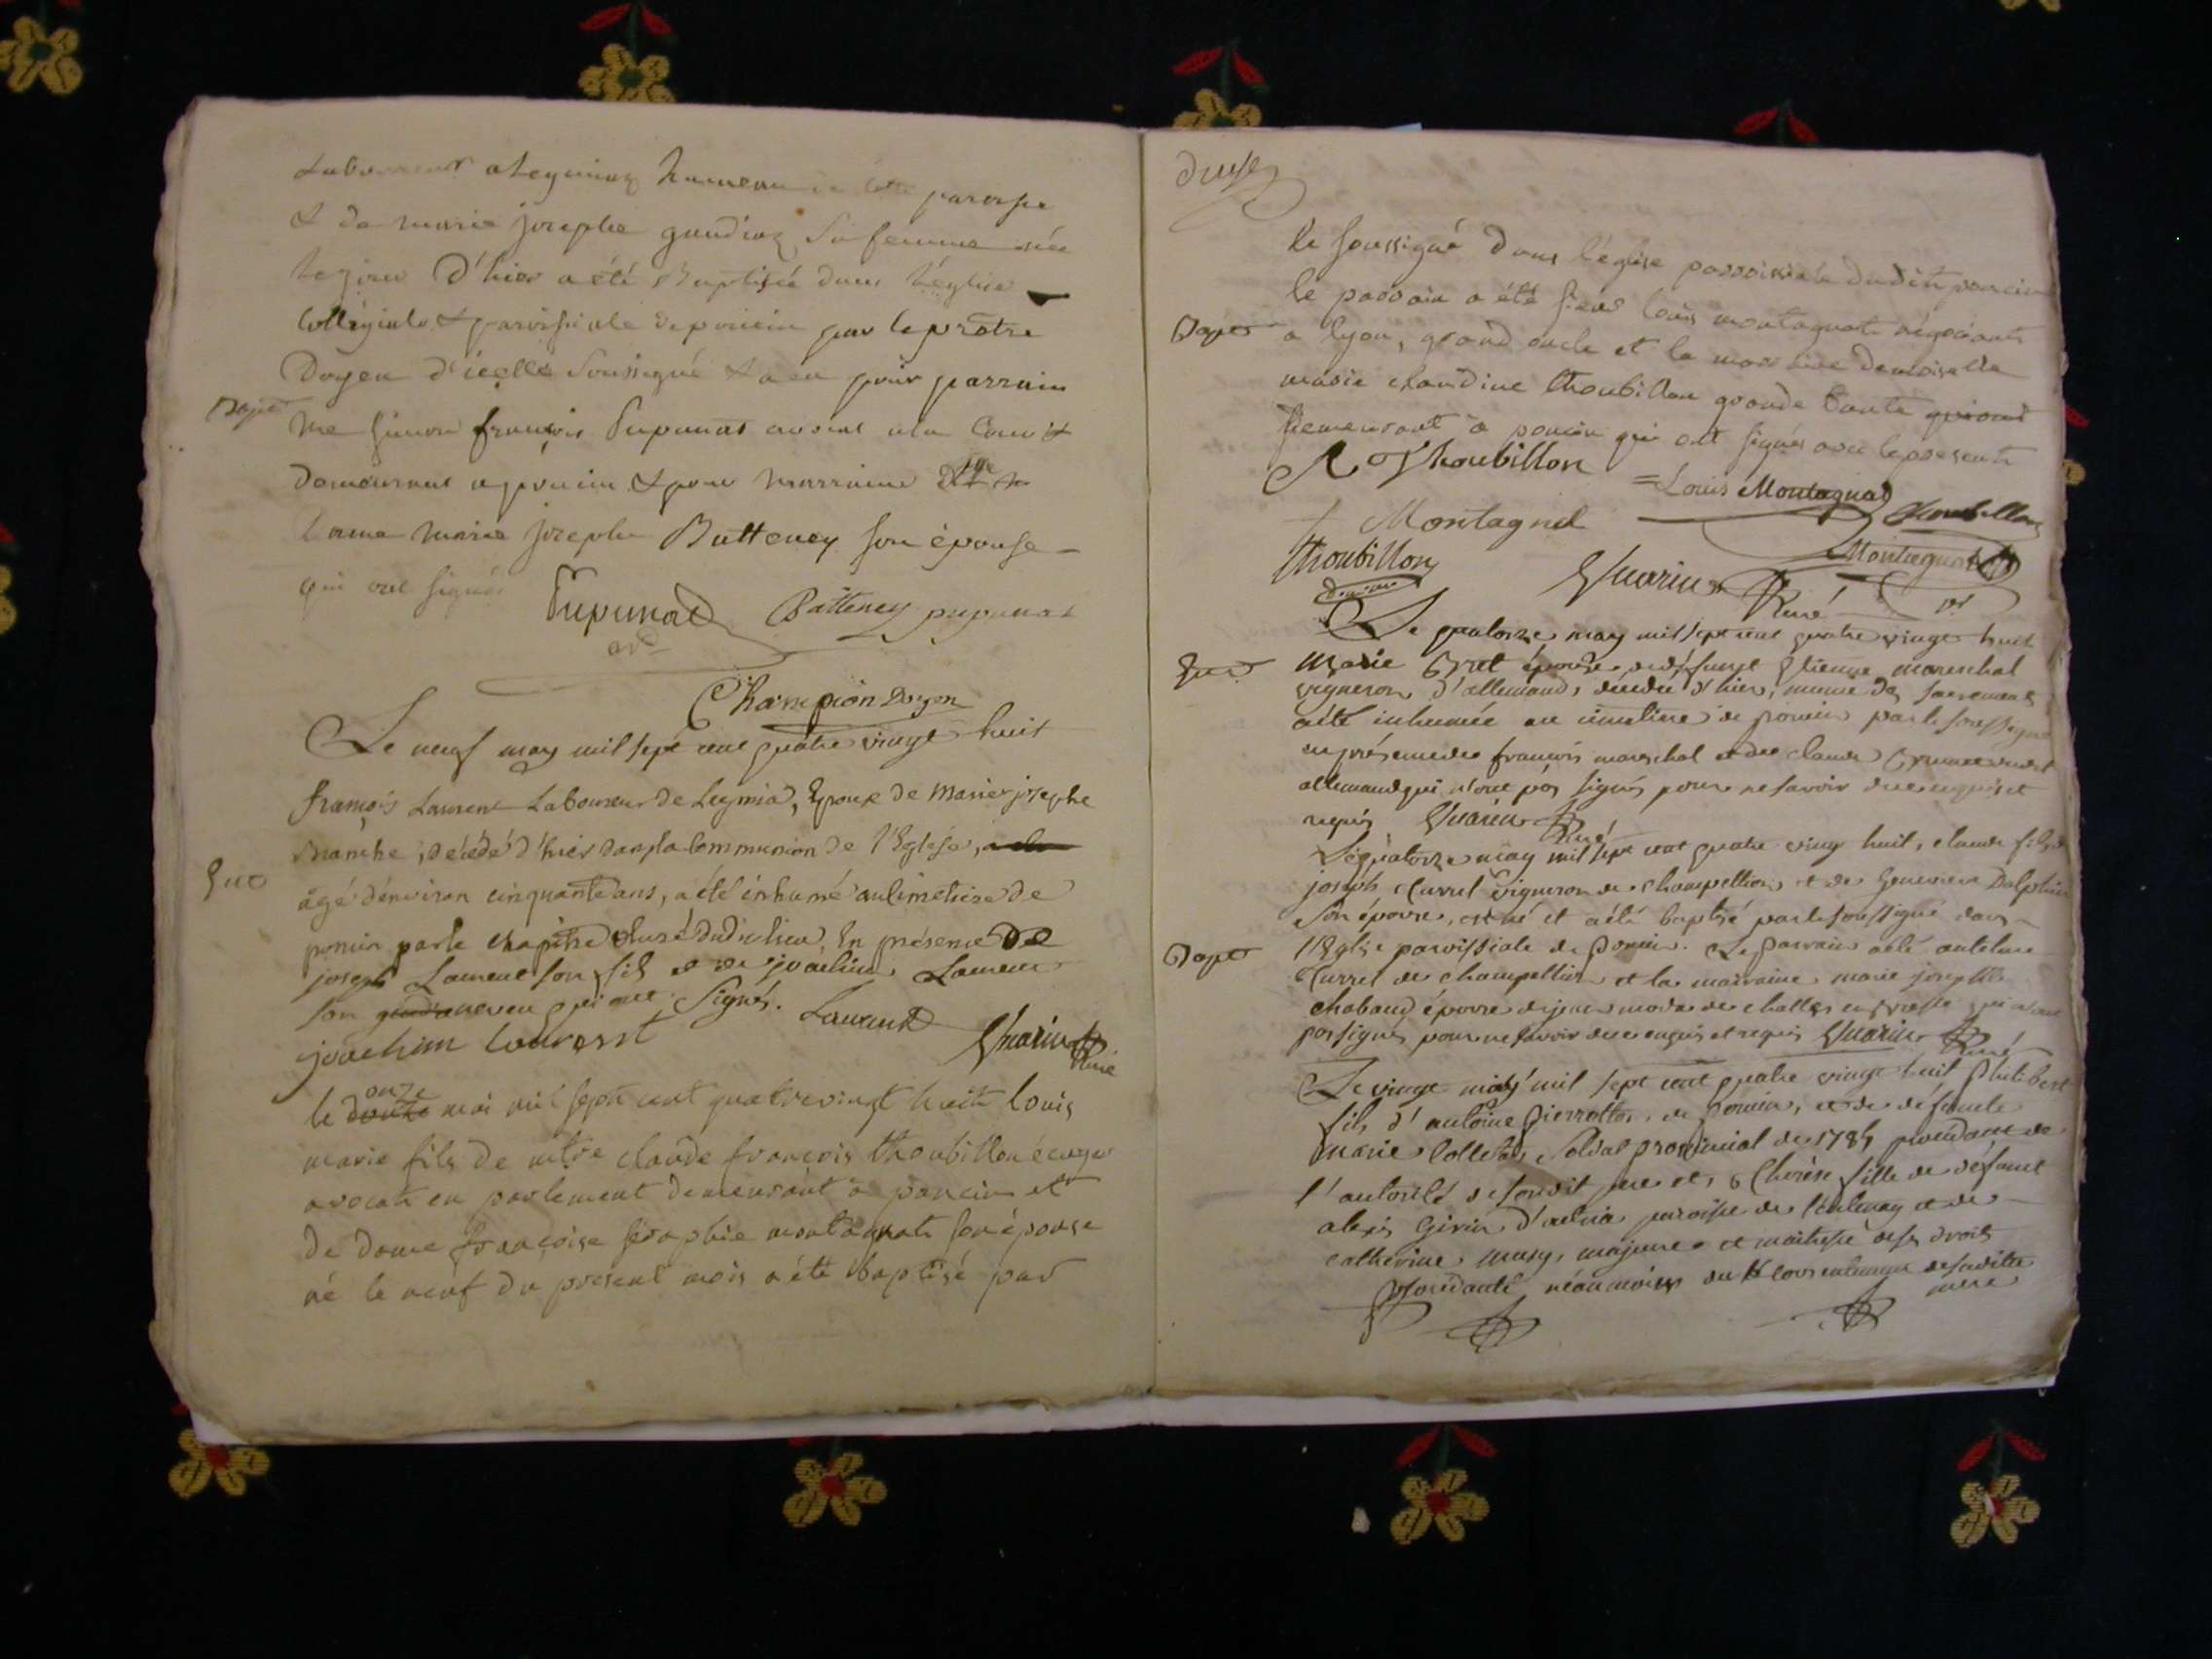 Laboureur a Leymiaz hameau de cette paroisse
& de marie josephe gaudiaz sa femme née
le jour d'hier a été Baptisée dans l'église
Collégiale & paroissiale de poncin par le prêtre
Doyen d'icelle soussigné & a eu pour parrain
Bapt
Me simon françois Pupunat avocat a la Cour &
demeurant a poncin & pour marraine
dame marie josephe Batteney son épouse
qui ont signés
Pupunat Batteney pupunat
avt
Champion Doyen
Le neuf may mil sept cent quatre vingt huit
françois Laurent Laboureur de Leymia, Epoux de Marie josephe
manche, décédé d'hier dans la Communion de l'Eglise,
Ento
âgé d'environ cinquante ans, a été inhumé au Cimetiere de
poncin par le chapitre & curé dudit lieu, En présence de
joseph Laurent son fils et de joachim Laurent
son neveu qui ont signés. Laurent
joachim Lauranst Guarin Curé
onze
le douze mai mil sept cent quatrevingt huit louis
marie fils de mtre claude françois thoubillon écuyer
avocat en parlement demeurant à poncin et
de dame françoise séraphie montagnat son épouse
né le neuf du present mois a été baptisé par
le soussigné dans l'église parroissiale dudit poncin
le parrain a été sieur louis montagnat négociant
Bapt
a lyon, grand oncle et la marraine demoiselle
marie claudine thoubillon grande tante
demeurant à poncin qui ont signés avec le present
Thoubillon = Louis Montagnat
Montagnat Thoubillon
Thoubillon Guarin Curé Montagnat
Le quatorze may mil sept cent quatre vingt huit
Ento
Marie épouse de deffunct Etienne mareschal
vigneron d'allemand, décédée d'hier, munie des sacrements
a été inhumée au cimetiere de poncin par le soussigné
en présence de françois mareschal et de claude
allemand qui n'ont pas signés pour ne savoir de ce enquis et
requis Guarin Curé
Le quatorze may mil sept cent quatre vingt huit, claude fils de
joseph Curret vigneron de champeillon et de Genevieve Dalphin
son épouse, est né et a été baptisé par le soussigné dans
Bapt
l'Eglise paroissiale de Poncin. Le parrain a été antelme
Curret de champeillon et la marraine marie josephte
chabaud épouse de jean modas de challes en bresse qui n'ont
pas signés pour ne savoir de ce enquis et requis Guarin Curé
Le vingt may mil sept cent quatre vingt huit Philibert
fils d'antoine Pierrotton, de poncin, et de défuncte
Marie Colletas, soldat provincial de 1784, procédant de
l'autorité de sondit pere et, & Thérèse fille de défunct
alexis Girin d'urtria paroisse de l'oulenay et de
catherine musy, majeure et maitresse de ses droits
procédante néanmoins du consentement de sadite
mere